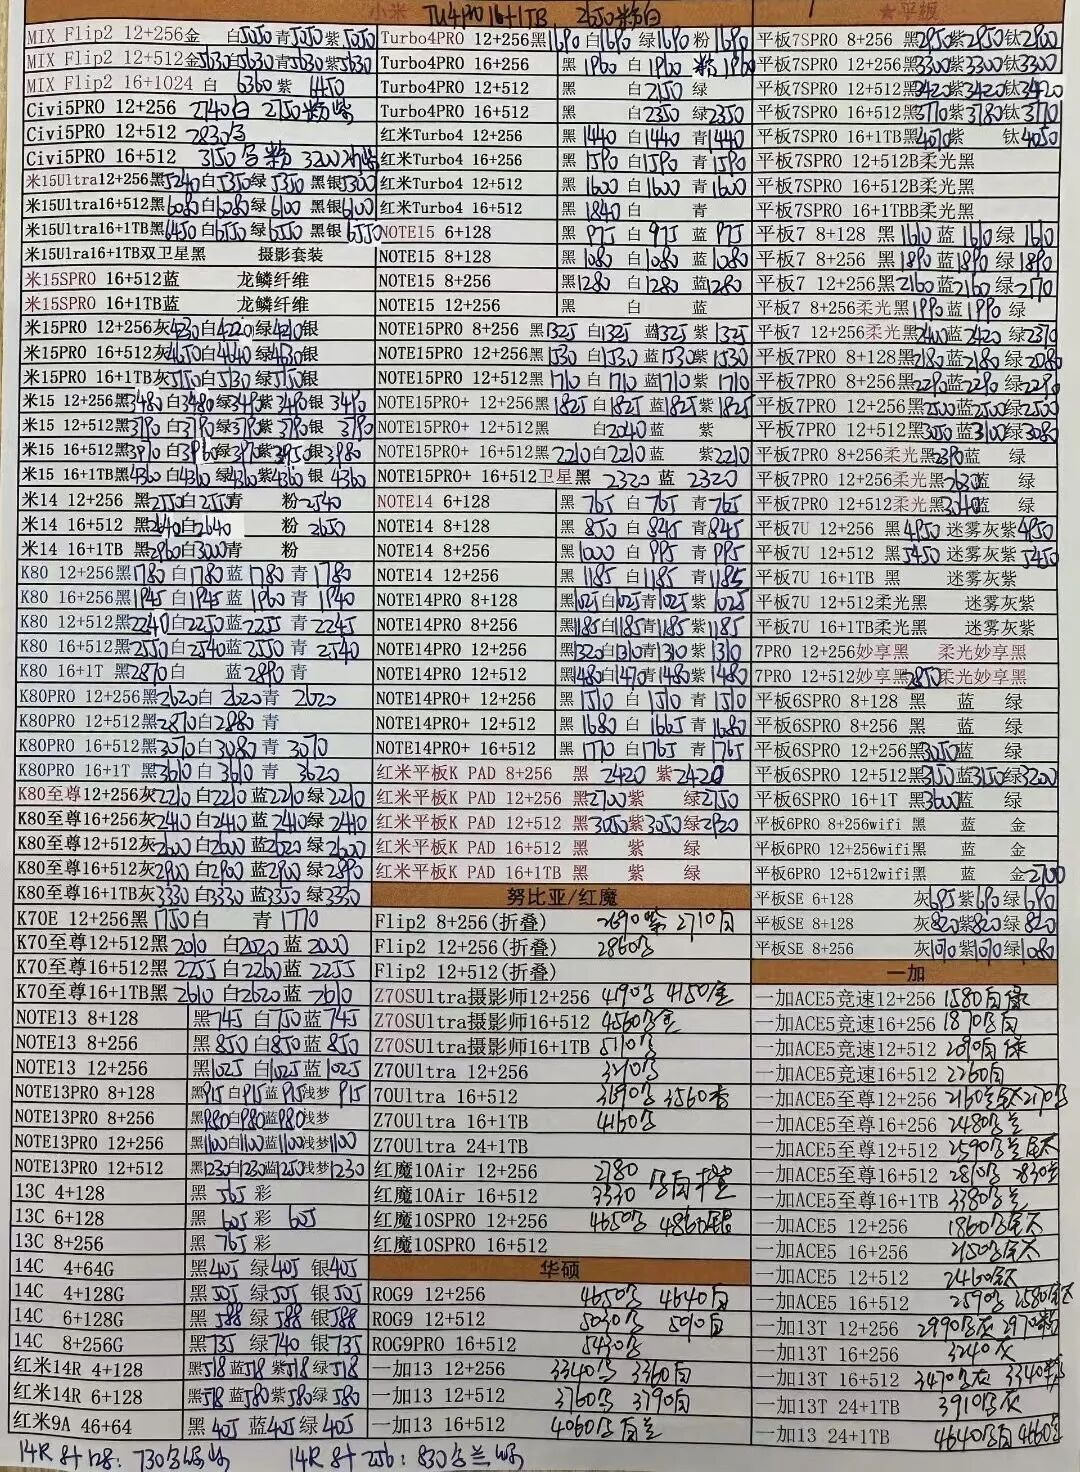 小米 TU4PRO 16+1TB 2650粉白
★平板
MIX Flip2 12+256金 白5050青5050紫5050
MIX Flip2 12+512金5630白5630青5630紫5630
MIX Flip2 16+1024 白 6360 紫 6450
Civi5PRO 12+256 2740白 2750粉紫
Civi5PRO 12+512 2830
Civi5PRO 16+512 3150 粉 3200
米15Ultra12+256黑5240白5350绿5350 黑银5300
米15Ultra16+512黑6080白6080绿6100 黑银6100
米15Ultra16+1TB黑6450白6550绿6550 黑银6550
米15Ulra16+1TB双卫星黑 摄影套装
米15SPRO 16+512蓝 龙鳞纤维
米15SPRO 16+1TB蓝 龙鳞纤维
米15PRO 12+256灰4230白4220绿4210银
米15PRO 16+512灰4650白4640绿4630银
米15PRO 16+1TB灰5150白5130绿5150银
米15 12+256黑3480白3480绿3490紫3490银 3490
米15 12+512黑3790白3790绿3790紫3790银 3790
米15 16+512黑3970白3960绿3970紫3950银3980
米15 16+1TB黑4360白4360绿4360紫4360银 4360
米14 12+256 黑2550白2550青 粉2540
米14 16+512 黑2640白2640 粉 2650
米14 16+1TB 黑2960白3000青 粉
K80 12+256黑1780 白1780蓝 1780 青 1780
K80 16+256黑1945 白1945蓝 1960 青 1940
K80 12+512黑2240白2250蓝2255 青 2245
K80 16+512黑2550白2540蓝2550 青 2540
K80 16+1T 黑2870白 蓝2890 青
K80PRO 12+256黑2620白 2620青 2620
K80PRO 12+512黑2870白2880 青
K80PRO 16+512黑3070白3080 青 3070
K80PRO 16+1T 黑3610白 3610 青 3620
K80至尊12+256灰2210 白2210 蓝2210绿 2210
K80至尊16+256灰2410 白2410 蓝2410绿 2410
K80至尊12+512灰2600 白2600 蓝2620绿 2600
K80至尊16+512灰2900 白2900 蓝2900绿 2890
K80至尊16+1TB灰3330白3330 蓝3350绿 3330
K70E 12+256黑 1750白 青 1770
K70至尊12+512黑 2010 白2020 蓝 2000
K70至尊16+512黑 2255 白2260 蓝 2255
K70至尊16+1TB黑 2610 白2620 蓝 2610
NOTE13 8+128 黑745 白750蓝 745
NOTE13 8+256 黑850 白850蓝 850
NOTE13 12+256 黑1025 白1025蓝1025
NOTE13PRO 8+128 黑915白915蓝915浅梦 915
NOTE13PRO 8+256 黑980白980蓝980浅梦
NOTE13PRO 12+256 黑1100白1100蓝1100浅梦1100
NOTE13PRO 12+512 黑1230白1230蓝1250浅梦1230
13C 4+128 黑 565 彩
13C 6+128 黑 605 彩 605
13C 8+256 黑 765 彩
14C 4+64G 黑405 绿405 银405
14C 4+128G 黑505 绿505 银505
14C 6+128G 黑588 绿588 银588
14C 8+256G 黑735 绿740 银735
红米14R 4+128 黑518蓝518紫518绿518
红米14R 6+128 黑518 蓝580紫580绿580
红米9A 46+64 黑405 蓝405绿405
14R 8+128: 730 14R 8+256: 830
Turbo4PRO 12+256黑1690白1690 绿1690粉 1690
Turbo4PRO 16+256 黑 1960 白1960 粉1960
Turbo4PRO 12+512 黑 白2150 绿
Turbo4PRO 16+512 黑 白2350 绿2350
红米Turbo4 12+256 黑1440白1440 青1440
红米Turbo4 16+256 黑1590白1590 青1590
红米Turbo4 12+512 黑1600白1600 青1600
红米Turbo4 16+512 黑1840白 青
NOTE15 6+128 黑 975 白 975 蓝 975
NOTE15 8+128 黑1080 白1080蓝1080
NOTE15 8+256 黑1280 白1280蓝1280
NOTE15 12+256 黑 白 蓝
NOTE15PRO 8+256 黑1325 白1325 蓝1325 紫 1325
NOTE15PRO 12+256黑1530 白1530 蓝1530紫1530
NOTE15PRO 12+512黑1710 白 1710 蓝1710 紫 1710
NOTE15PRO+ 12+256黑 1825白1825 蓝1825 紫 1825
NOTE15PRO+ 12+512黑 白2040蓝 紫
NOTE15PRO+ 16+512黑2210白2210 蓝 紫2210
NOTE15PRO+ 16+512卫星黑 2320 蓝 2320
NOTE14 6+128 黑 765 白 765 青765
NOTE14 8+128 黑 850 白 845 青845
NOTE14 8+256 黑1000 白 995 青995
NOTE14 12+256 黑1185 白1185 青1185
NOTE14PRO 8+128 黑1025白1025青1025紫1025
NOTE14PRO 8+256 黑1185白1185青1185紫1185
NOTE14PRO 12+256 黑1320白1310青1310紫1310
NOTE14PRO 12+512 黑1480白1470青1480紫1480
NOTE14PRO+ 12+256 黑 1510 白 1510 青1510
NOTE14PRO+ 12+512 黑 1680 白 1665青1680
NOTE14PRO+ 16+512 黑 1770 白1765青1765
红米平板K PAD 8+256 黑 2420 紫2420
红米平板K PAD 12+256 黑2700紫 绿2750
红米平板K PAD 12+512 黑3050紫3050绿2920
红米平板K PAD 16+512 黑 紫 绿
红米平板K PAD 16+1TB 黑 紫 绿
努比亚/红魔
Flip2 8+256(折叠) 2690 2710白
Flip2 12+256(折叠) 2860
Flip2 12+512(折叠)
Z70SUltra摄影师12+256 4190 4150
Z70SUltra摄影师16+512 4560
Z70SUltra摄影师16+1TB 5110
Z70Ultra 12+256 3210
70Ultra 16+512 3690 3560
Z70Ultra 16+1TB 4160
Z70Ultra 24+1TB
红魔10Air 12+256 2780
红魔10Air 16+512 3330
红魔10SPRO 12+256 4650 4860银
红魔10SPRO 16+512
华硕
ROG9 12+256 4650 4640白
ROG9 12+512 5030 5090白
ROG9PRO 16+512 5430
一加13 12+256 3340 3360白
一加13 12+512 3760 3790白
一加13 16+512 4060
平板7SPRO 8+256 黑2950紫2950钛2900
平板7SPRO 12+256黑3300紫3300钛3300
平板7SPRO 12+512黑3420紫3420钛3420
平板7SPRO 16+512黑3770紫3780钛3770
平板7SPRO 16+1TB黑4070紫 钛4050
平板7SPRO 12+512B柔光黑
平板7SPRO 16+512B柔光黑
平板7SPRO 16+1TBB柔光黑
平板7 8+128 黑1610 蓝1610绿 1610
平板7 8+256 黑1890 蓝1890绿 1890
平板7 12+256 黑2160 蓝2160绿 2170
平板7 8+256柔光黑1990蓝1990 绿
平板7 12+256柔光黑2400蓝2420 绿2370
平板7PRO 8+128黑2180蓝2180 绿2080
平板7PRO 8+256黑2290蓝2290 绿2290
平板7PRO 12+256黑2500蓝2500绿2500
平板7PRO 12+512黑3050蓝3100绿3080
平板7PRO 8+256柔光黑2390蓝 绿
平板7PRO 12+256柔光黑2630蓝 绿
平板7PRO 12+512柔光黑3040蓝 绿
平板7U 12+256 黑4950 迷雾灰紫4950
平板7U 12+512 黑5450 迷雾灰紫5450
平板7U 16+1TB 黑 迷雾灰紫
平板7U 12+512柔光黑 迷雾灰紫
平板7U 16+1TB柔光黑 迷雾灰紫
7PRO 12+256妙享黑 柔光妙享黑
7PRO 12+512妙享黑2850柔光妙享黑
平板6SPRO 8+128 黑 蓝 绿
平板6SPRO 8+256 黑 蓝 绿
平板6SPRO 12+256黑3050蓝 绿
平板6SPRO 12+512黑3150蓝3150绿3200
平板6SPRO 16+1T 黑3600蓝 绿
平板6PRO 8+256wifi 黑 蓝 金
平板6PRO 12+256wifi黑 蓝 金
平板6PRO 12+512wifi黑 蓝 金2700
平板SE 6+128 灰695紫690绿690
平板SE 8+128 灰820紫820绿 820
平板SE 8+256 灰1070紫1070绿1080
一加
一加ACE5竞速12+256 1580白绿
一加ACE5竞速16+256 1870
一加ACE5竞速12+512 2090白绿
一加ACE5竞速16+512 2260白
一加ACE5至尊12+256 2160 2170
一加ACE5至尊16+256 2480
一加ACE5至尊12+512 2590
一加ACE5至尊16+512 2810 2830
一加ACE5至尊16+1TB 3380
一加ACE5 12+256 1860
一加ACE5 16+256 2150
一加ACE5 12+512 2460
一加ACE5 16+512 2590 2580
一加13T 12+256 2990 2970粉
一加13T 16+256 3240灰
一加13T 16+512 3470 3340粉
一加13T 24+1TB 3910
一加13 24+1TB 4640 4660